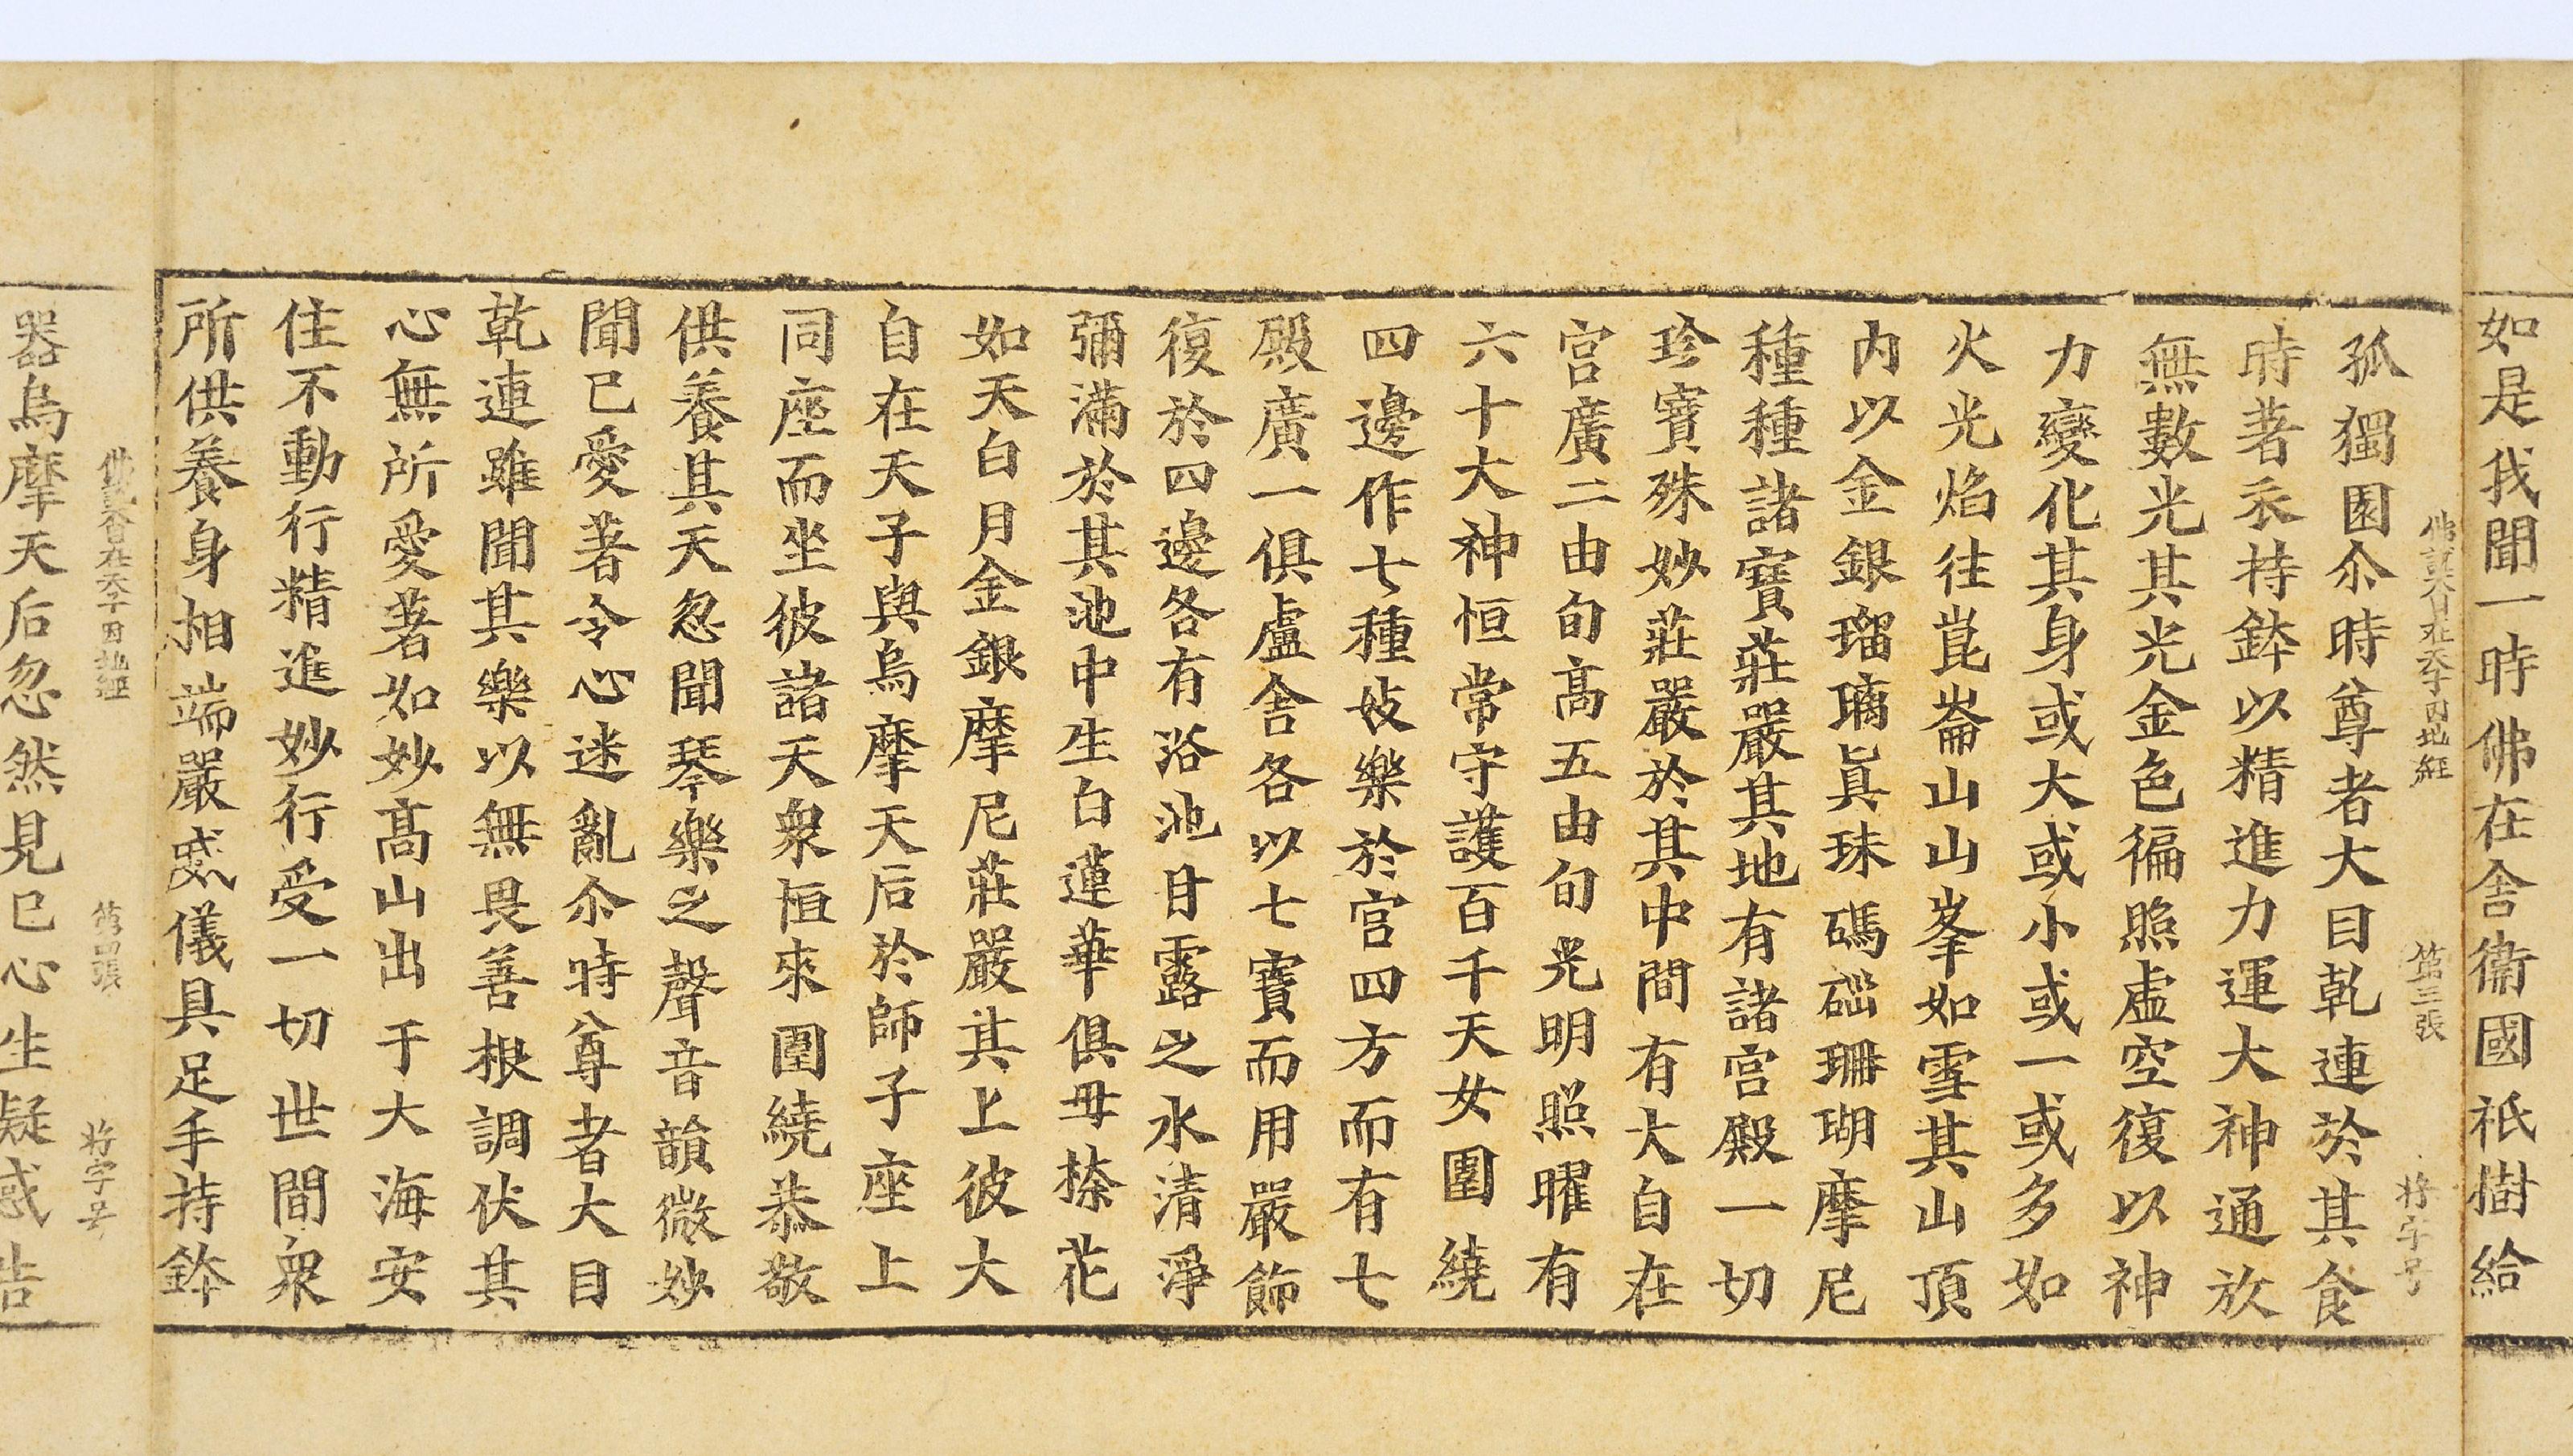 如是我聞一時佛在舍衞國祇樹給
佛說大自在天子因地經 第三張 將字号
孤獨園尒時尊者大目乾連於其食
時著衣持鉢以精進力運大神通放
無數光其光金色徧照虛空復以神
力變化其身或大或小或一或多如
火光焰往崑崙山山峯如雪其山頂
内以金銀瑠璃眞珠碼碯珊瑚摩尼
種種諸寶莊嚴其地有諸宮殿一切
珍寶殊妙莊嚴於其中間有大自在
宮廣二由旬高五由旬光明照曜有
六十大神恒常守護百千天女圍繞
四邊作七種妓樂於宮四方而有七
殿廣一俱盧舍各以七寶而用嚴飾
復於四邊各有浴池甘露之水清淨
彌滿於其池中生白蓮華俱毋捺花
如天白月金銀摩尼莊嚴其上彼大
自在天子與烏摩天后於師子座上
同座而坐彼諸天衆恒來圍繞恭敬
供養其天忽聞琴樂之聲音韻微妙
聞已愛著令心迷亂尒時尊者大目
乾連雖聞其樂以無畏善根調伏其
心無所愛著如妙高山出于大海安
住不動行精進妙行受一切世間衆
所供養身相端嚴威儀具足手持鉢
佛說大自在天子因地經 第四張 將字号
器烏摩天后忽然見已心生疑惑告